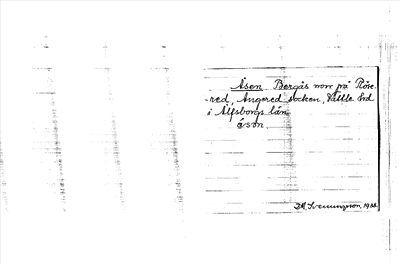 Åsen Bergås norr på Röse-
-red, Angered socken, Vättle hd
i Älfsborgs län
åsən.
Svenungsson, 1933.